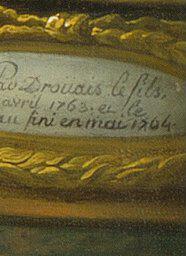 Drouais le fils,
avril 1763. et le
fini en mai 1764.